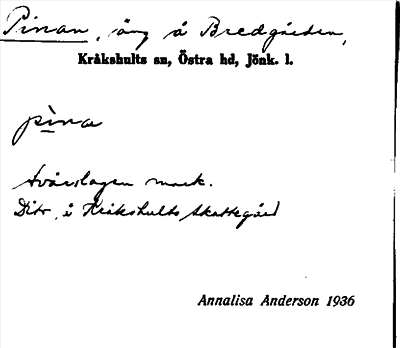 Pinan, äng å Bredgården,
Kråkshults sn, Östra hd, Jönk. l.
pìna
tvärslagen mark.
Dito, å Kråkshults Skattegård
Annalisa Anderson 1936